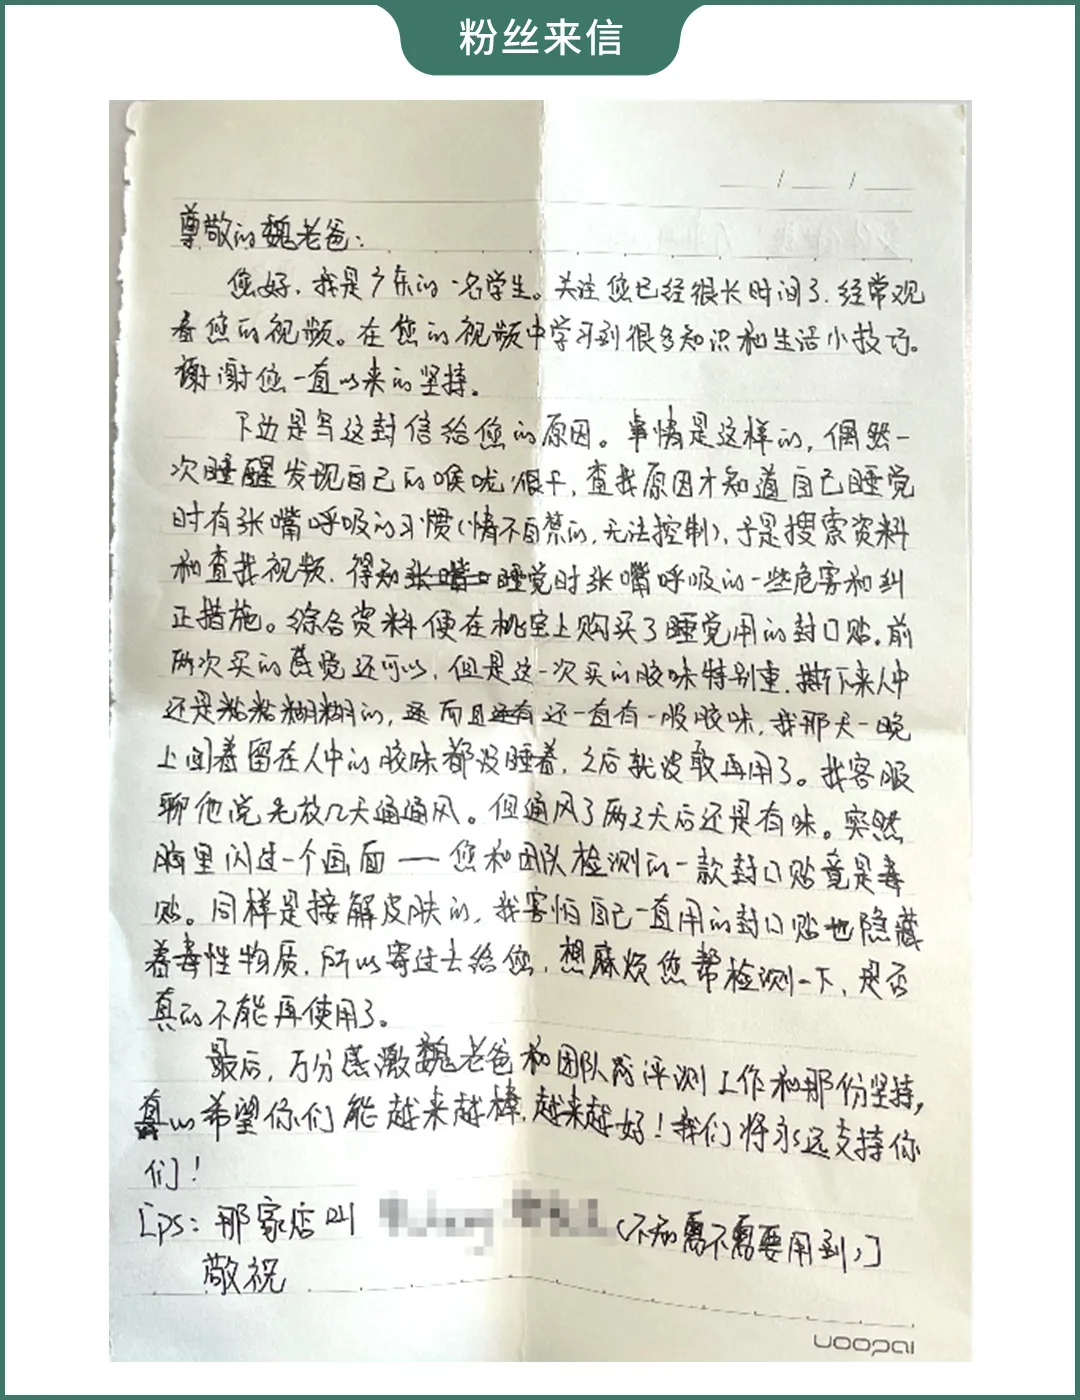 粉丝来信
尊敬的魏老爸：
您好，我是广东的一名学生。关注您已经很长时间了，经常观
看您的视频。在您的视频中学习到很多知识和生活小技巧。
谢谢您一直以来的坚持。
下边是写这封信给您的原因。事情是这样的，偶然一
次睡醒发现自己的喉咙很干，查找原因才知道自己睡觉
时有张嘴呼吸的习惯（情不自禁的，无法控制），于是搜索资料
和查找视频，得知睡觉时张嘴呼吸的一些危害和纠
正措施。综合资料便在桃宝上购买了睡觉用的封口贴。前
两次买的感觉还可以，但是这一次买的胶味特别重，撕下来人中
还是粘粘糊糊的，而且还一直有一股胶味，我那天一晚
上闻着留在人中的胶味都没睡着，之后就没敢再用了。找客服
聊他说先放几天通通风。但通风了两三天后还是有味。突然
脑里闪过一个画面——您和团队检测的一款封口贴竟是毒
贴。同样是接解皮肤的，我害怕自己一直用的封口贴也隐藏
着毒性物质，所以寄过去给您，想麻烦您帮检测一下，是否
真的不能再使用了。
最后，万分感激魏老爸和团队的评测工作和那份坚持，
真心希望你们能越来越棒，越来越好！我们将永远支持你
们！
[ps：那家店叫（不知需不需要用到，]
敬祝
uoopai